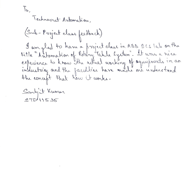 To,
Technocrat Automation.
(Sub:- Project class feedback)
I am glad to have a project class in ABB Lab on the
title "Automation of Rotary Table System". It was a nice
experience to know the actual working of equipments in an
industry and the faculties have made me understand
the concept that how it works.
Sanjit Kumar